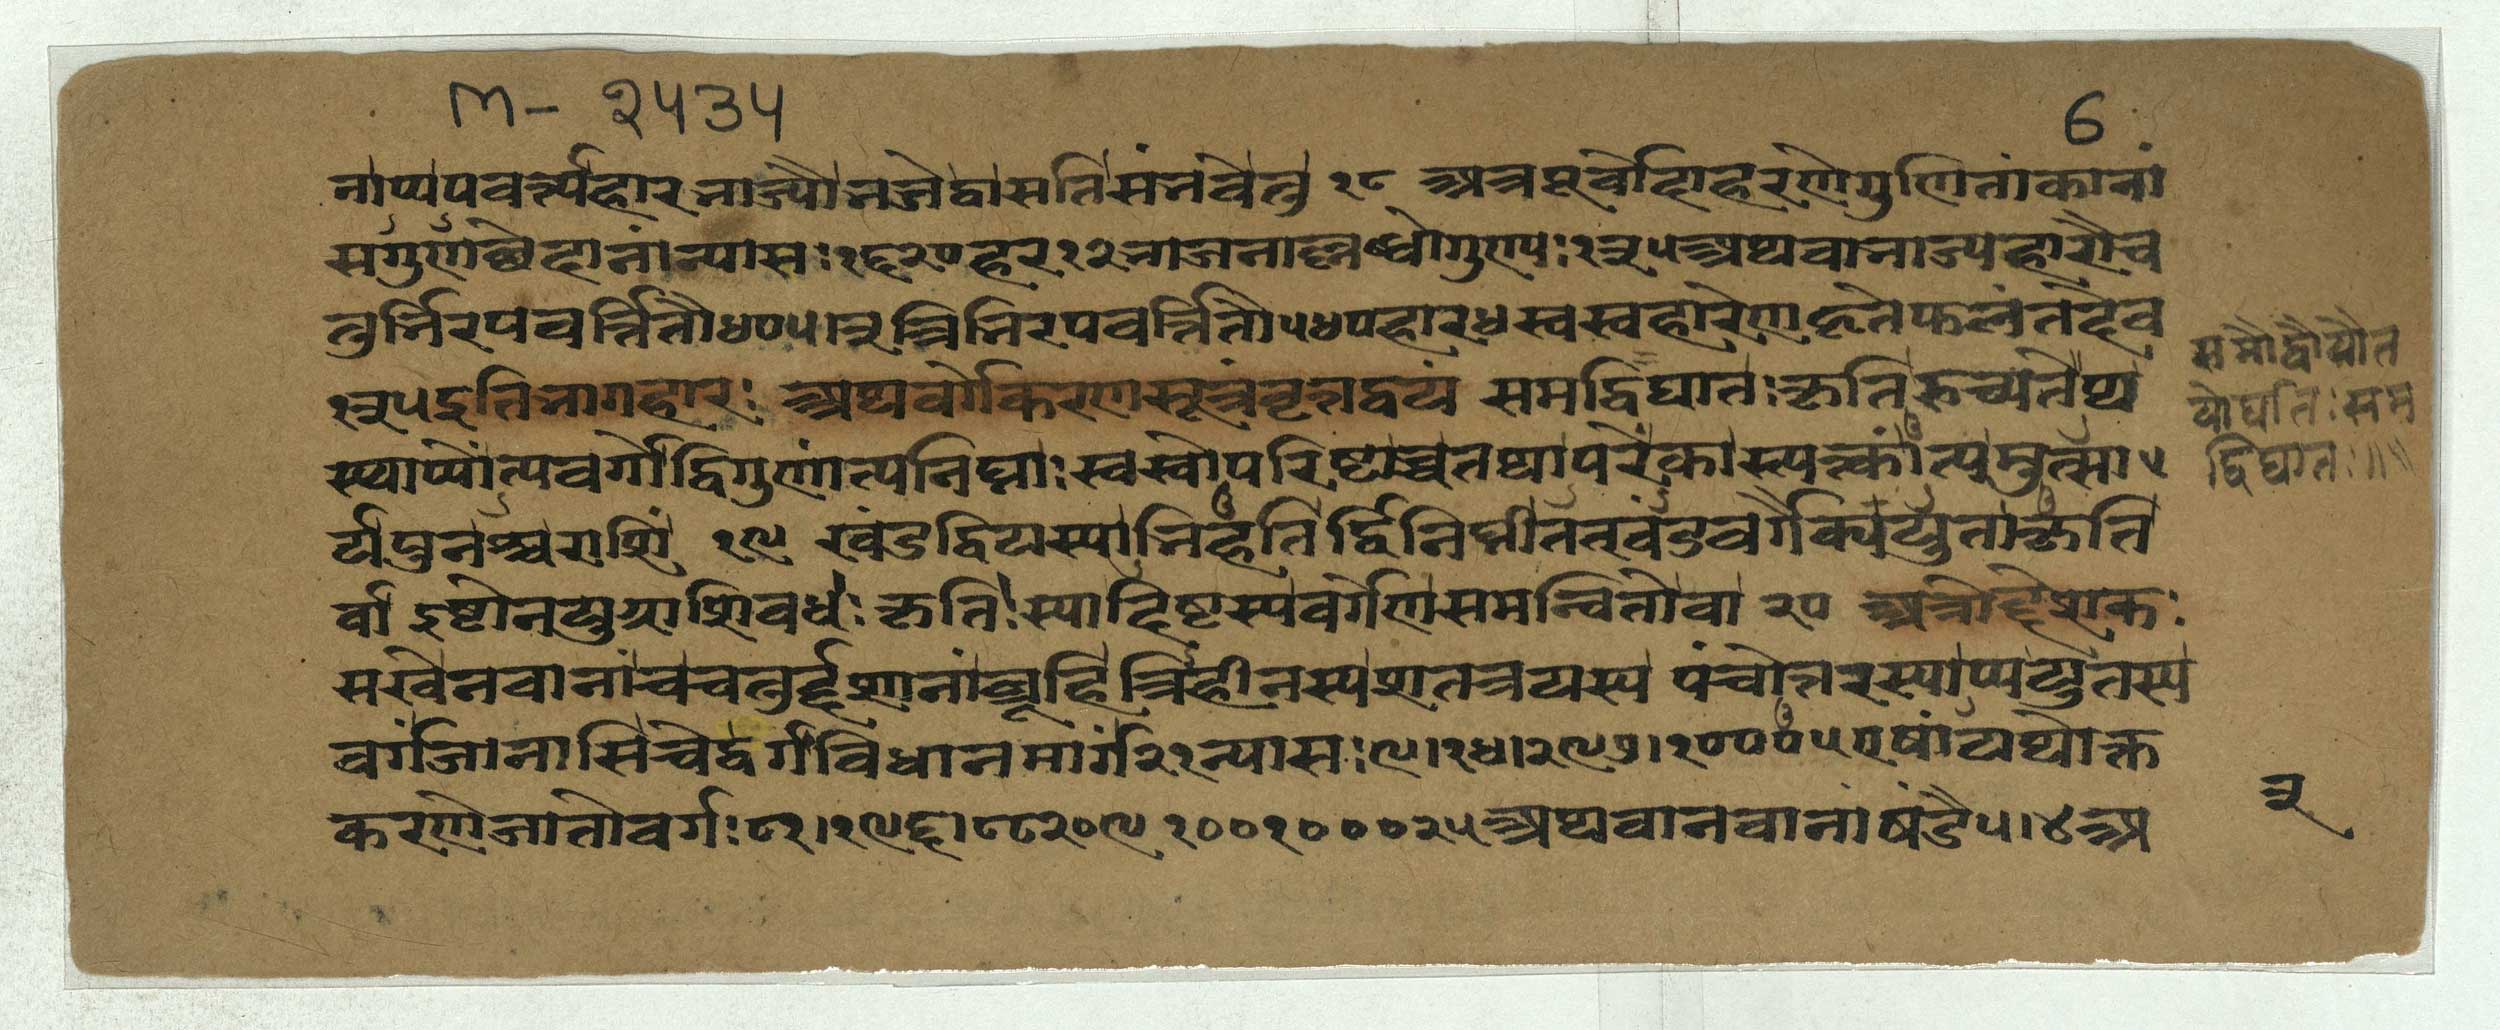 M- २५३५
6
नाप्यपवर्त्त्यहारभाज्यौभजेद्वासतिसंभवेतु १८ अत्रपूर्वोदाहरणेगुणितांकानां
सगुणछेदानांन्यासः १६२० हर १२ भाजनाल्लब्धोगुण्यः १३५ अथवाभाज्यहारौच
तुर्भिरपवर्त्तितौ ४०५।३ त्रिभिरपवर्त्तितौ ५४० हार ४ स्वस्वहारेणहृतेफलंतदेव
१३५ इतिभागहारः अथवर्गेकरणसूत्रंवृत्तद्वयं समद्विघातःकृतिरुच्यतेथ
स्थाप्योंत्यवर्गोद्विगुणांत्यनिघ्नाः स्वस्वोपरिष्टाच्चतथापरेंकास्त्यत्क्कांत्यमुत्सा
र्यपुनश्चराशिं १९ खंडद्वयस्याभिहतिर्द्विनिघ्नीतत्खंडवर्गैक्ययुताकृति
र्वा इष्टोनयुग्राशिवधः कृतिःस्यादिष्टस्यवर्गेणसमन्वितोवा २० अत्रोद्देशकः
सखेनवानांचचतुर्द्दशानांब्रूहित्रिहीनस्यशतत्रयस्य पंचोत्तरस्याप्ययुतस्य
वर्गंजानासिचेद्वर्गविधानमार्गं २१ न्यासः ९।१४।२९७।१०००५ एषांयथोक्त
करणेजातोवर्गः ८१।१९६।८८२०९ १००१०००२५ अथवानवानांषंडे ५।४ अ
समौद्वौयौत
योर्घातःसम
द्विघातः॥॥
३